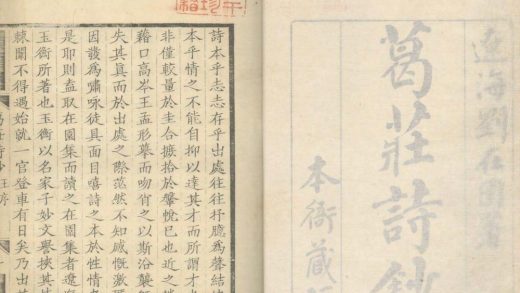 遼海劉在園著
葛莊詩鈔
本衙藏
詩本乎志志存乎出處往往抒臆為聲結
本乎情之不能自抑以達其才而所謂才
非僅較量於圭合摭拾於鞶帨已也近之
藉口高岑王孟形摹而吻肖之以斯沿襲
失其真而於出處之際茫然不知感慨激
因發為嘯咏徒具面目嘻詩之本於性情
是耶則盍取在園集而讀之在園集者遼
玉衡所著也玉衡以名家子妙文譽挾其
棘闈不得遇始就一官登車有日矣乃出其